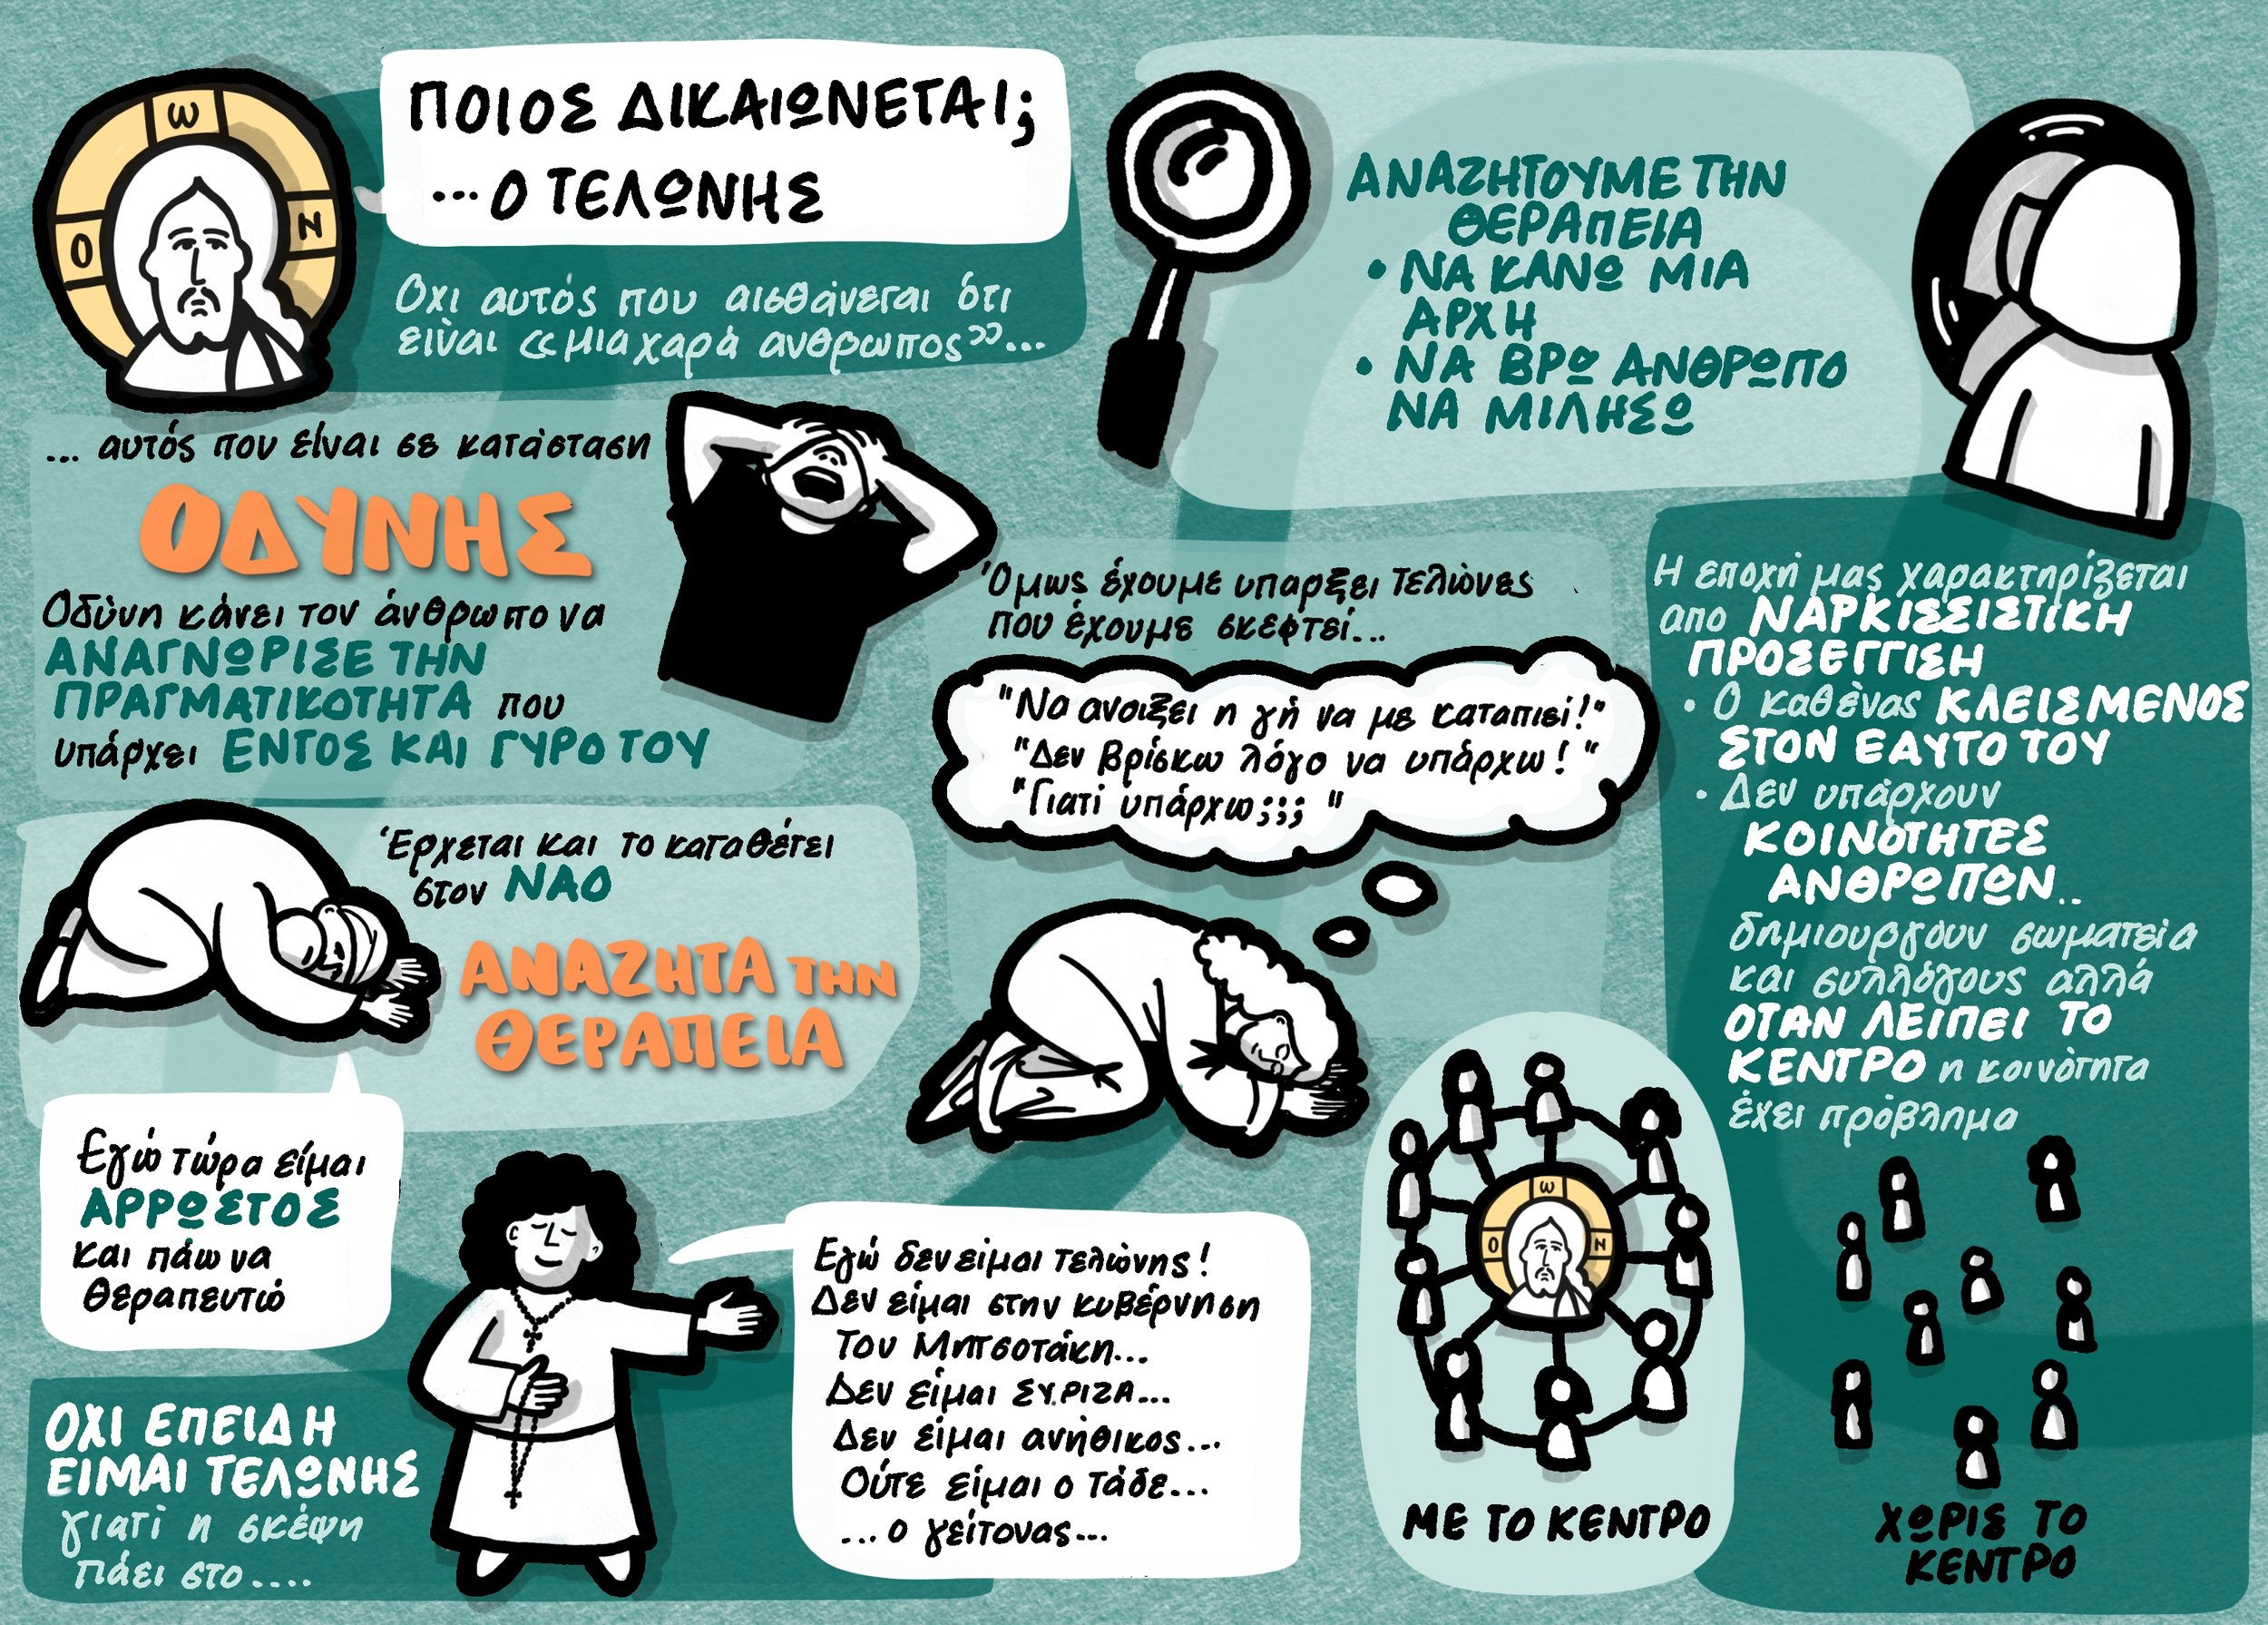 Ο
Ω
Ν
ΠΟΙΟΣ ΔΙΚΑΙΩΝΕΤΑΙ;
...Ο ΤΕΛΩΝΗΣ
Οχι αυτός που αισθάνεται ότι
είναι «μια χαρά ανθρωπος»...
... αυτός που είναι σε κατάσταση
ΟΔΥΝΗΣ
Οδύνη κάνει τον άνθρωπο να
ΑΝΑΓΝΩΡΙΣΕ ΤΗΝ
ΠΡΑΓΜΑΤΙΚΟΤΗΤΑ που
υπάρχει ΕΝΤΟΣ ΚΑΙ ΓΥΡΟ ΤΟΥ
Έρχεται και το καταθέτει
στον ΝΑΟ
ΑΝΑΖΗΤΑ ΤΗΝ
ΘΕΡΑΠΕΙΑ
Εγώ τώρα είμαι
ΑΡΡΩΣΤΟΣ
και πάω να
θεραπευτώ
ΟΧΙ ΕΠΕΙΔΗ
ΕΙΜΑΙ ΤΕΛΩΝΗΣ
γιατί η σκέψη
πάει στο....
Εγώ δεν είμαι τελώνης!
Δεν είμαι στην κυβέρνηση
του Μητσοτάκη...
Δεν είμαι ΣΥ.ΡΙΖΑ...
Δεν είμαι ανήθικος...
Ούτε είμαι ο τάδε...
...ο γείτονας...
ΑΝΑΖΗΤΟΥΜΕ ΤΗΝ
ΘΕΡΑΠΕΙΑ
• ΝΑ ΚΑΝΩ ΜΙΑ
ΑΡΧΗ
• ΝΑ ΒΡΩ ΑΝΘΡΩΠΟ
ΝΑ ΜΙΛΗΣΩ
Όμως έχουμε υπαρξει τελώνες
που έχουμε σκεφτεί...
"Να ανοιξει η γή να με καταπιεί!"
"Δεν βρίσκω λόγο να υπάρχω!"
"Γιατί υπάρχω;;; "
Η εποχή μας χαρακτηρίζεται
απο ΝΑΡΚΙΣΣΙΣΤΙΚΗ
ΠΡΟΣΕΓΓΙΣΗ
• Ο καθένας ΚΛΕΙΣΜΕΝΟΣ
ΣΤΟΝ ΕΑΥΤΟ ΤΟΥ
• Δεν υπάρχουν
ΚΟΙΝΟΤΗΤΕΣ
ΑΝΘΡΩΠΩΝ..
δημιουργουν σωματεία
και συλλόγους αλλά
ΟΤΑΝ ΛΕΙΠΕΙ ΤΟ
ΚΕΝΤΡΟ η κοινότητα
έχει πρόβλημα
Ο
Ω
Ν
ΜΕ ΤΟ ΚΕΝΤΡΟ
ΧΩΡΙΣ ΤΟ
ΚΕΝΤΡΟ